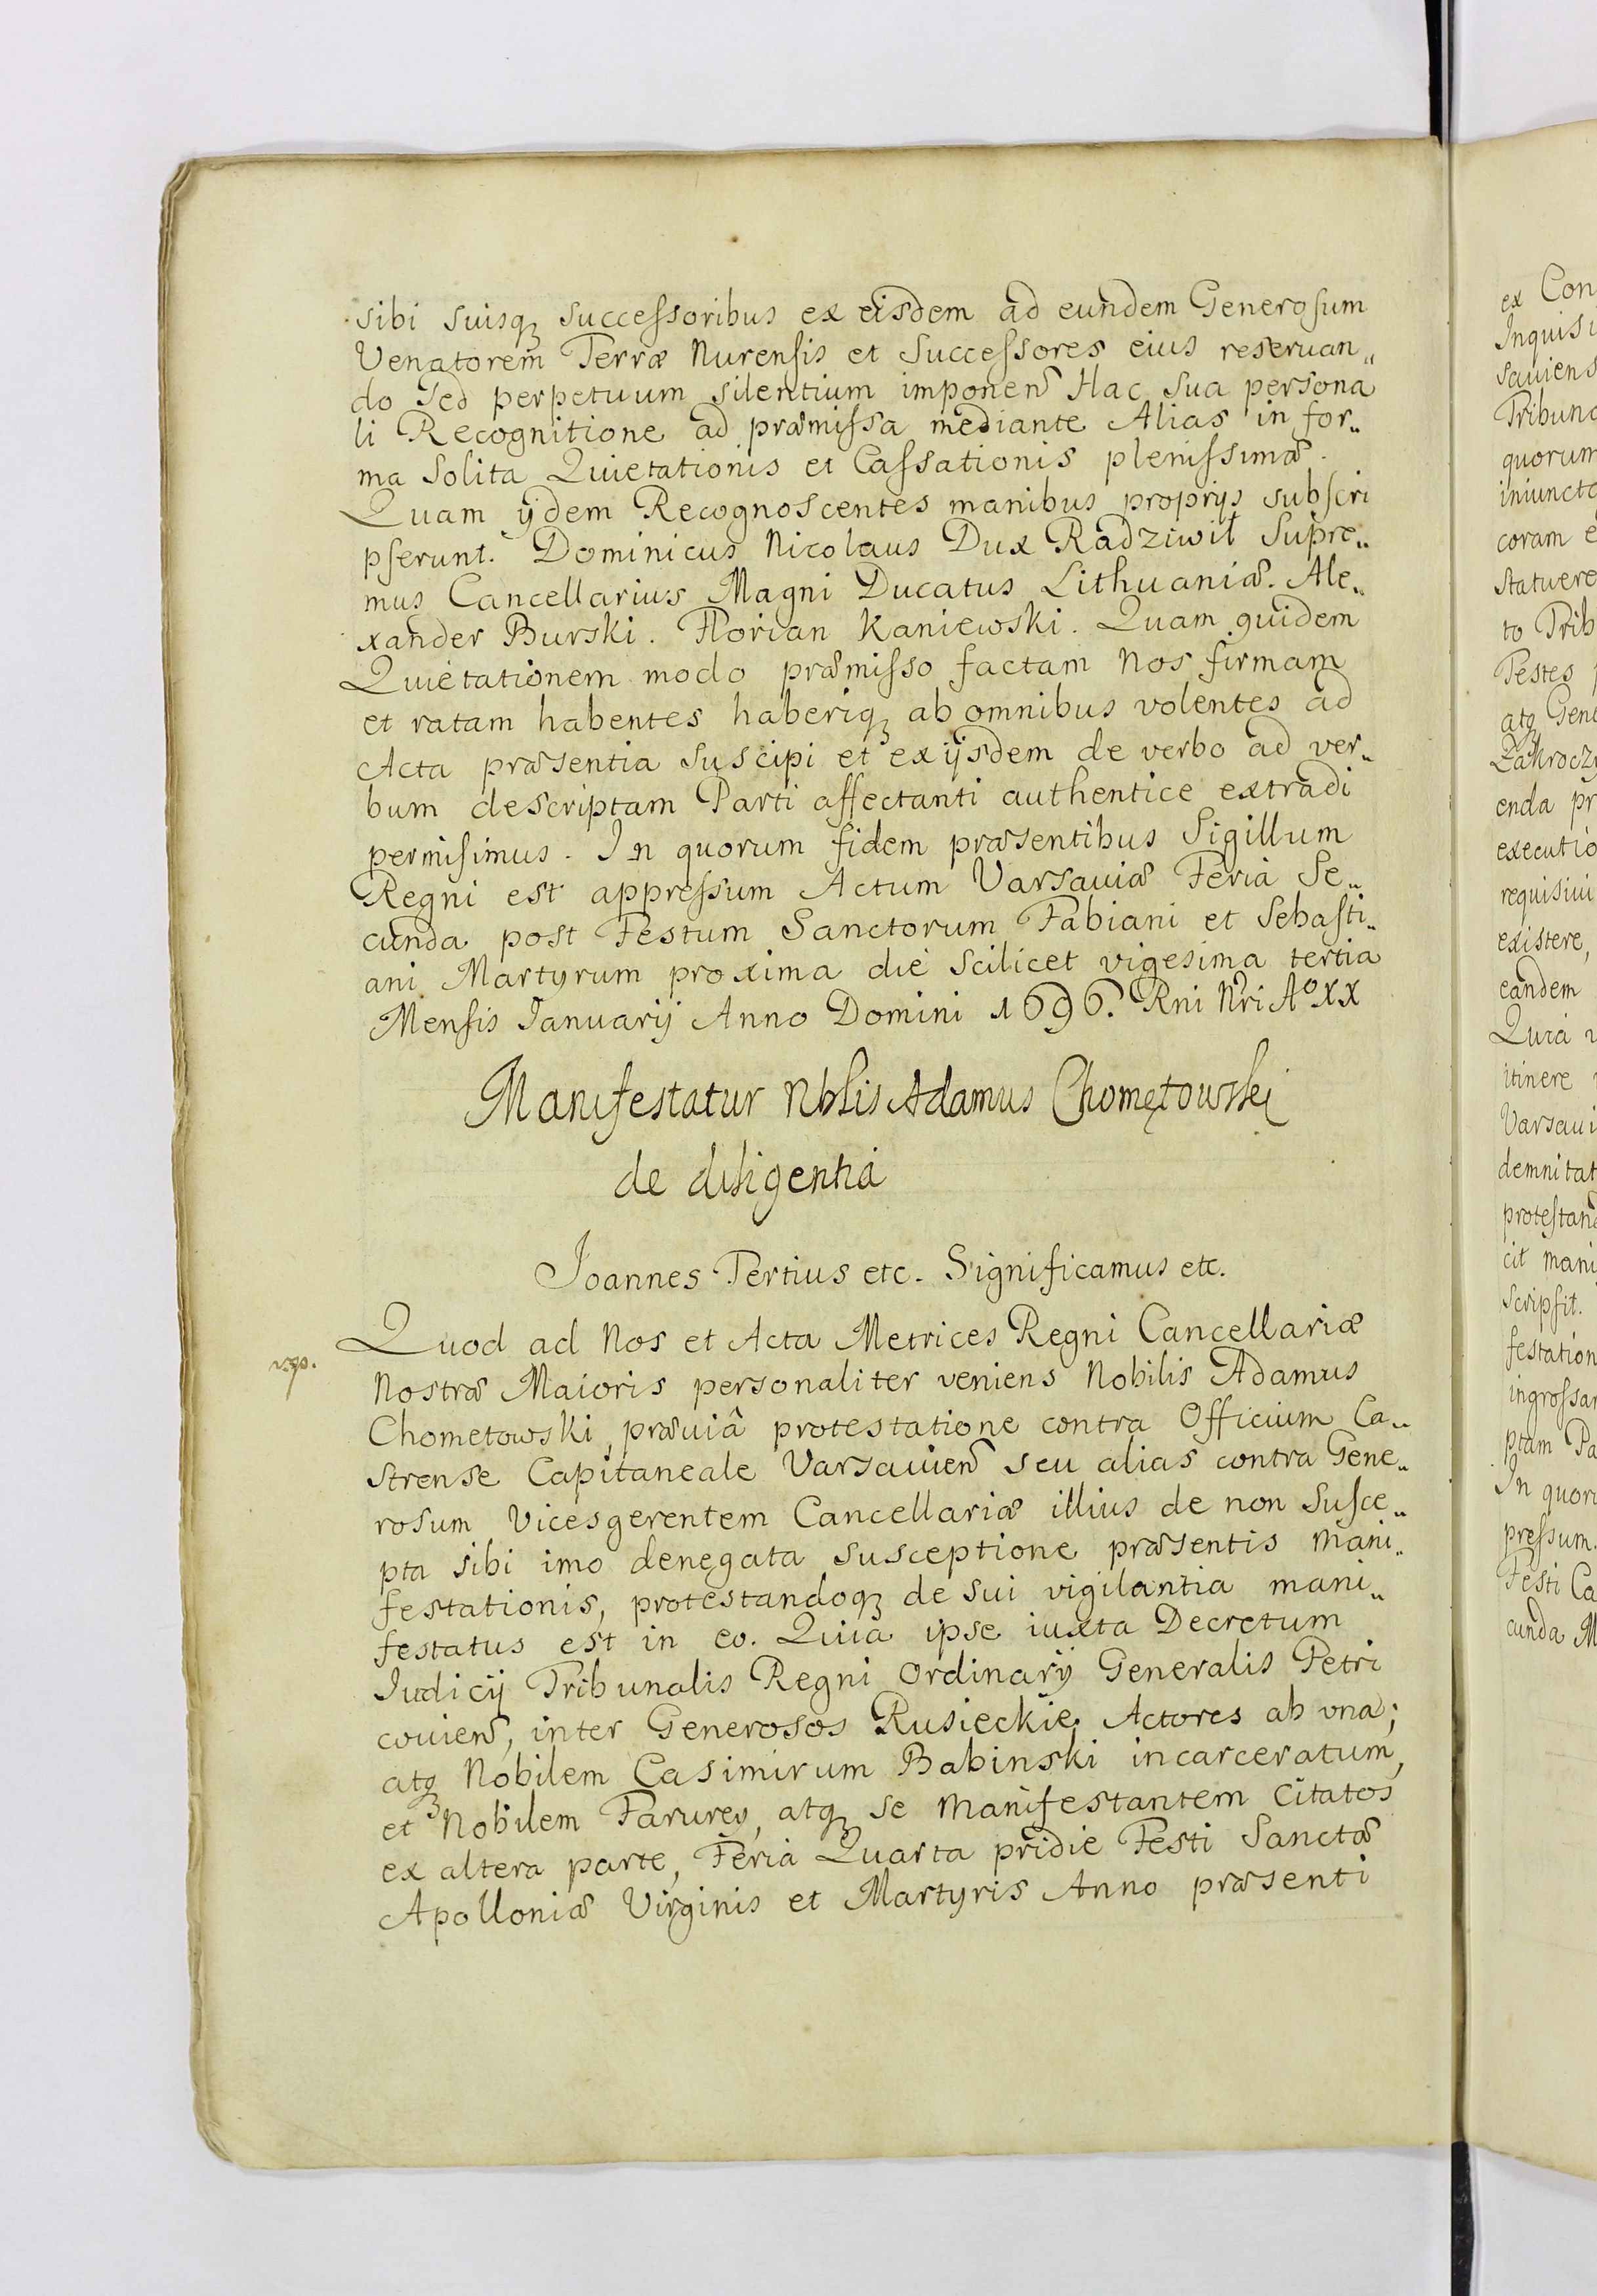 sibi suisqꝫ successoribus ex eisdem ad eundem Generosum
Venatorem Terræ Nurensis et Successores eius reseruan„
do Sed perpetuum silentium imponen̄ Hac sua persona
li Recognitione ad præmissa mediante Alias in for„
ma Solita Quietationis et Cassationis plenissimæ.
Quam ijdem Recognoscentes manibus proprijs subscri
pserunt. Dominicus Nicolaus Dux Radziwił Supre„
mus Cancellarius Magni Ducatus Lithuaniæ. Ale„
xander Burski. Florian Kaniewski. Quam quidem
Quietationem modo præmisso factam Nos firmam
et ratam habentes haberiqꝫ ab omnibus volentes ad
Acta præsentia suscipi et ex ijsdem de verbo ad ver„
bum descriptam Parti affectanti authentice extradi
permisimus. In quorum fidem præsentibus Sigillum
Regni est appressum Actum Varsauiæ Feria Se„
cunda post Festum Sanctorum Fabiani et Sebasti„
ani Martyrum proxima die scilicet vigesima tertia
Mensis Ianuarij Anno Domini 1696. Rni Nri Aº XX
Manifestatur Nblis Adamus Chomętowski
de diligentia
Joannes Tertius etc. Significamus etc.
Quod ad Nos et Acta Metrices Regni Cancellariæ
Nostræ Maioris personaliter veniens Nobilis Adamus
Chometowski, præuiâ protestatione contra Officium Ca„
strense Capitaneale Varsauien̄ seu alias contra Gene„
rosum Vicesgerentem Cancellariæ illius de non Susce„
pta sibi imo denegata susceptione præsentis Mani„
festationis, protestandoqꝫ de sui vigilantia mani„
festatus est in eo. Quia ipse iuxta Decretum
Iudicij Tribunalis Regni Ordinarij Generalis Petri
couien̄, inter Generosos Rusieckie Actores ab vna;
atqꝫ Nobilem Casimirum Babinski incarceratum,
et Nobilem Farurey, atqꝫ se Manifestantem Citatos
ex altera parte, Feria Quarta pridie Festi Sanctæ
Apolloniæ Virginis et Martyris Anno præsenti
ex Con
Inquisi
sauiens
Tribuna
quorum
iniuncta
coram e
statuere
to Trib
Testes
atqꝫ Gene
Zakroczy
enda pr
executio
requisiui
existere,
eandem
Quia
itinere
Varsaui
demnitat
protestan
cit mani
scripsit.
festation
ingrossar
ptam Pa
In quoru
pressum.
Festi Ca
cunda M